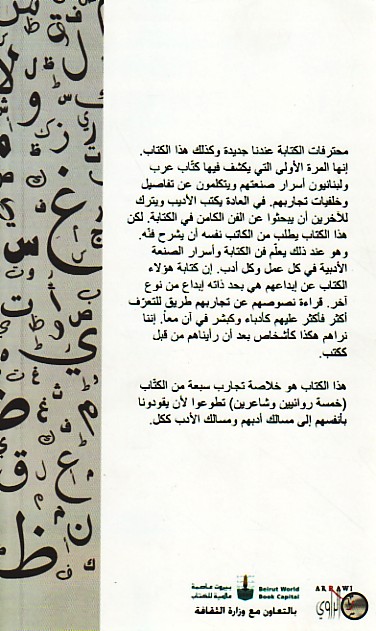 محترفات الكتابة عندنا جديدة وكذلك هذا الكتاب.
إنها المرة الأولى التي يكشف فيها كتّاب عرب
ولبنانيون أسرار صنعتهم ويتكلمون عن تفاصيل
وخلفيات تجاربهم. في العادة يكتب الأديب ويترك
للآخرين أن يبحثوا عن الفن الكامن في الكتابة. لكن
هذا الكتاب يطلب من الكاتب نفسه أن يشرح فنّه.
وهو عند ذلك يعلّم فن الكتابة وأسرار الصنعة
الأدبية في كل عمل وكل أدب. إن كتابة هؤلاء
الكتاب عن إبداعهم هي بحد ذاته إبداع من نوع
آخر. قراءة نصوصهم عن تجاربهم طريق للتعرّف
أكثر فأكثر عليهم كأدباء وكبشر في آن معاً. إننا
نراهم هكذا كأشخاص بعد أن رأيناهم من قبل
ككتب.
هذا الكتاب هو خلاصة تجارب سبعة من الكتّاب
(خمسة روائيين وشاعرين) تطوعوا لأن يقودونا
بأنفسهم إلى مسالك أدبهم ومسالك الأدب ككل.
بيروت عاصمة
عالمية للكتاب
Beirut World
Book Capital
بالتعاون مع وزارة الثقافة
AR RAWI
الراوي